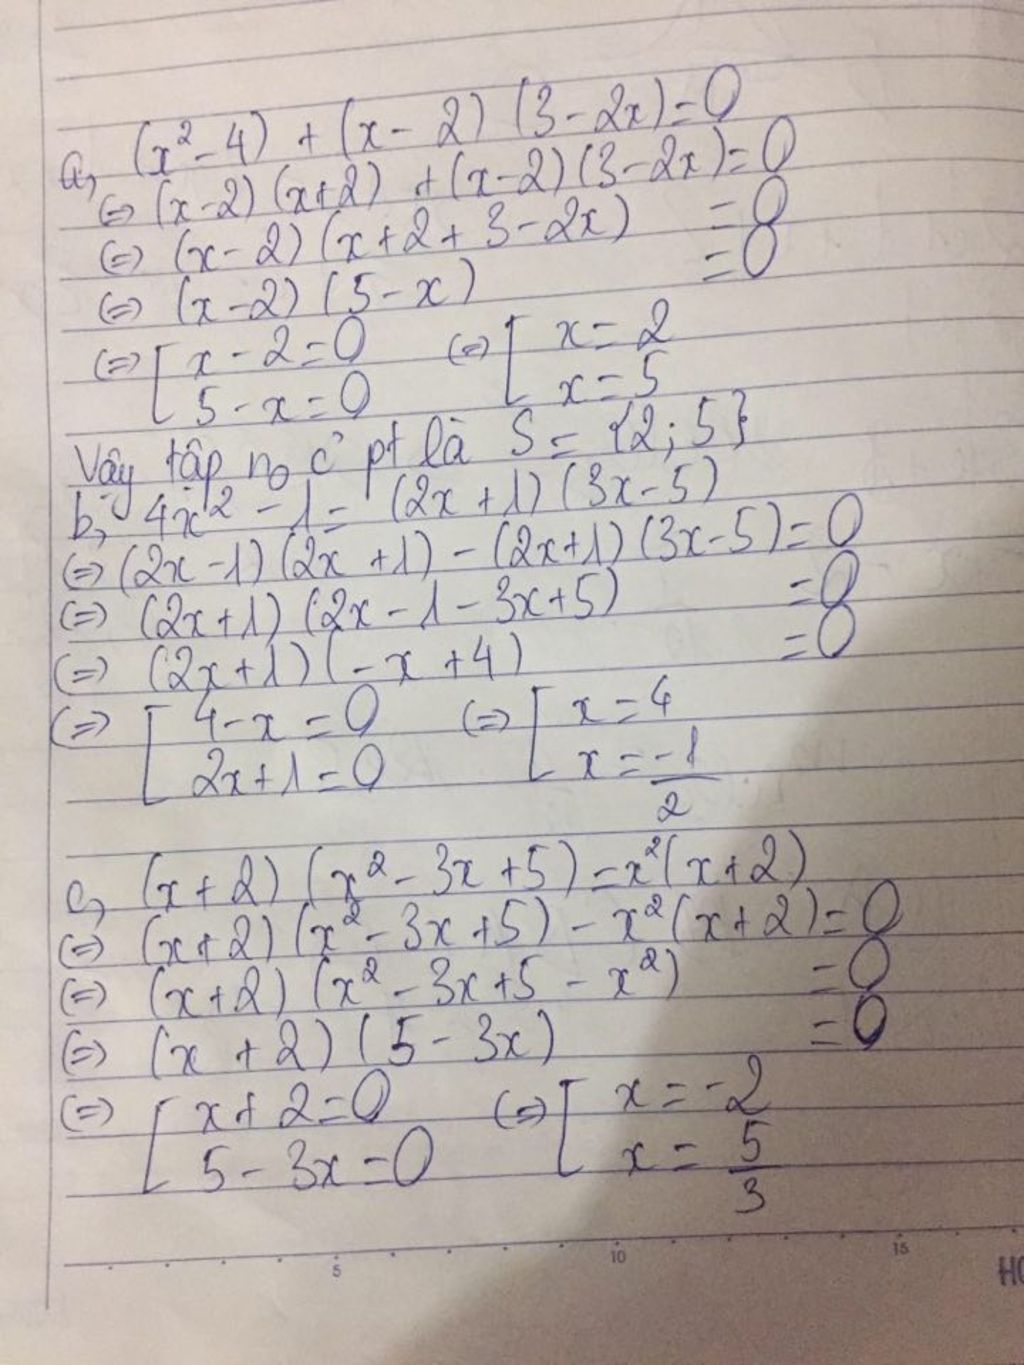 a, (x² - 4) + (x - 2) (3 - 2x) = 0
(=) (x - 2) (x + 2) + (x - 2) (3 - 2x) = 0
(=) (x - 2) (x + 2 + 3 - 2x) = 0
(=) (x - 2) (5 - x) = 0
(=) [ x - 2 = 0 (=) [ x = 2
5 - x = 0 x = 5
Vậy tập no c' pt là S = {2; 5}
b, 4x² - 1 = (2x + 1) (3x - 5)
(=) (2x - 1) (2x + 1) - (2x + 1) (3x - 5) = 0
(=) (2x + 1) (2x - 1 - 3x + 5) = 0
(=) (2x + 1) (-x + 4) = 0
(=) [ 4 - x = 0 (=) [ x = 4
2x + 1 = 0 x = -1/2
c, (x + 2) (x² - 3x + 5) = x² (x + 2)
(=) (x + 2) (x² - 3x + 5) - x² (x + 2) = 0
(=) (x + 2) (x² - 3x + 5 - x²) = 0
(=) (x + 2) (5 - 3x) = 0
(=) [ x + 2 = 0 (=) [ x = -2
5 - 3x = 0 x = 5/3
5 10 15
HO